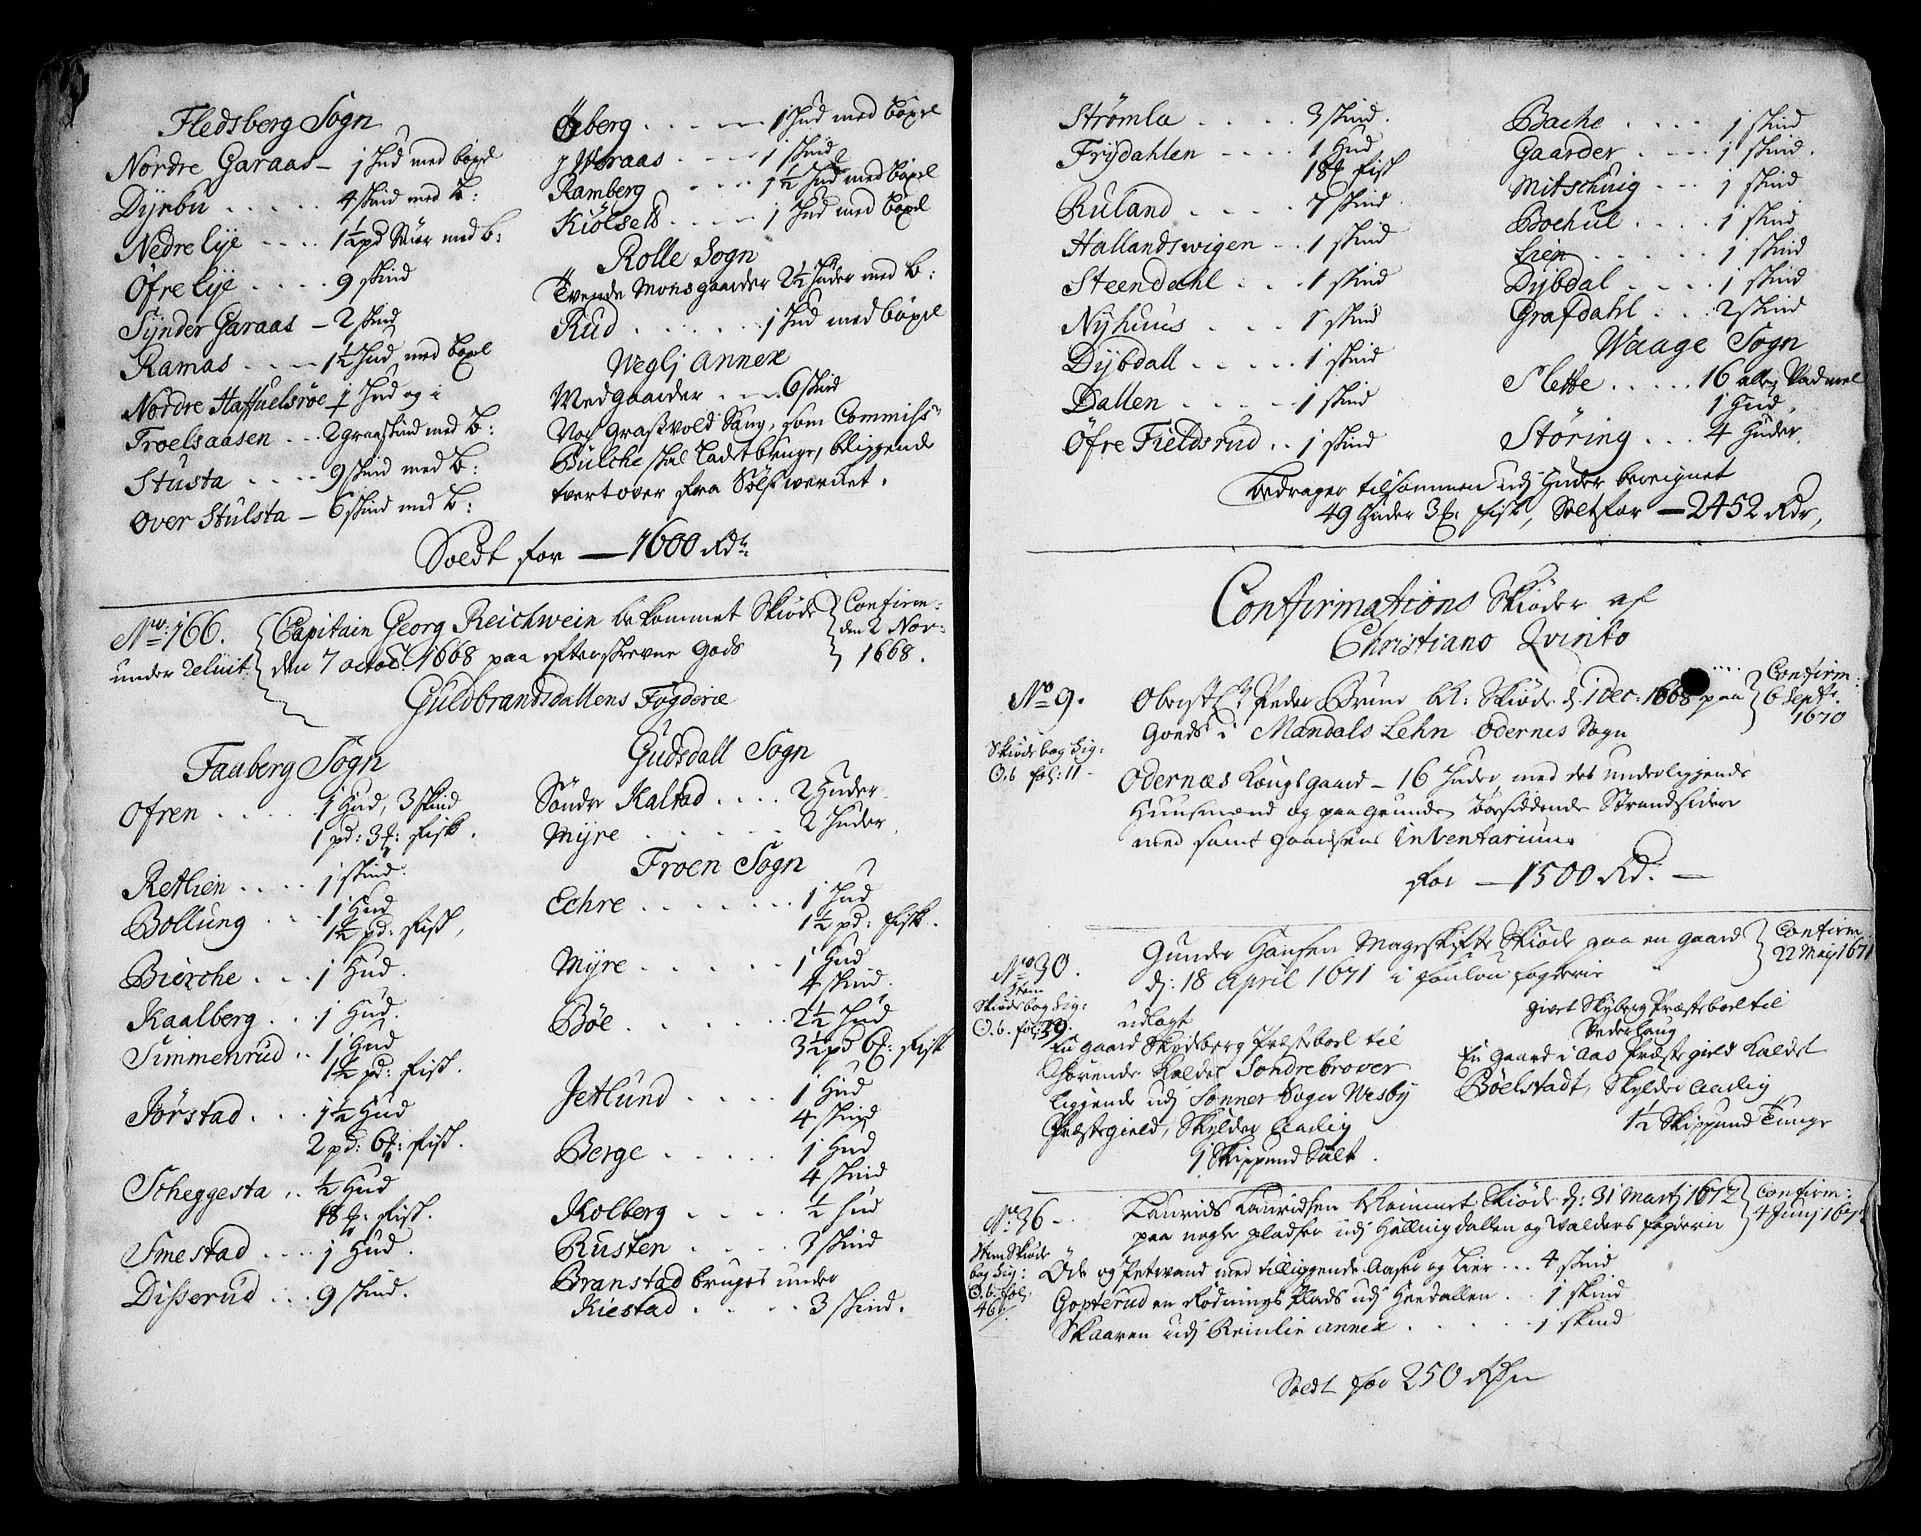 Fledsberg Sogn
Nordre Garaas – 1 Hud med böxel
Dyrbu . . . . . 4 skind med B:
Nedre Lye . . . . 1½ pd Smör med B:
Öfre Lye . . . . . 9 skind
Synder Garaas – 2 skind
Ramas . . . . 1½ Hud med böxel
Nordre Haffuelsröe 1 Hud og i
Troelsaasen . . . 2 graaskind med B:
Stusta . . . . . 9 skind med B:
Over Stulsta – 6 skind med B:
Öeberg . . . . . 1 Hud med böxel
Woraas . . . . 1 skind
Ramberg . . . . 1½ Hud med böxel
Kiölseth . . . . 1 Hud med böxel
Rolle Sogn
Tvende Mons gaarder 2½ Huder med B:
Rud . . . . . . 1 Hud med böxel
Weglj Annex
Wedgaarder . . . . 6 skind
Nos Grassvold Saug, som Commiss:
Bülche skal ladet bruge, bliggende
tvert over fra Sölfwercket.
Soldt for — 1600 Rdr:
No: 166.
under Reluit
Capitain Georg Reichwein bekommet Skiöde
den 7 octob: 1668 paa efterskrevne Gods
Confirm:
den 2 Nov:
1668.
Guldbrandsdallens Fogderie
Faaberg Sogn
Ofren . . . . . 1 Hud, 3 skind
1 pd: 3 f: Fisk.
Retlien . . . . 1 skind.
Bollung . . . 1 Hud
1½ pd: Fisk,
Bierche . . . 1 Hud.
Kaalberg . . . 1 Hud.
Simmenrud . . 1 Hud
1½ pd: Fisk.
Jörstad . . . 1½ Hud
2 pd: 6 f: Fisk.
Scheggesta . . ½ Hud
18 f: Fisk.
Smestad . . . . 1 Hud.
Disserud . . . 9 skind.
Gudsdall Sogn
Söndre Kalstad . . . . 2 Huder
Myre . . . . . . 2 Huder.
Froen Sogn
Echre . . . . . . . 1 Hud
1½ pd: Fisk.
Myre . . . . . . 1 Hud
4 skind.
Böe . . . . . . 2½ Hud
3½ pd 6 f: Fisk
Jetlund . . . . . 1 Hud
4 skind
Berge . . . . . 1 Hud
4 skind
Kolberg . . . . . ½ Hud
Rusten . . . . 3 skind
Branstad bruges under
Kiestad . . . . . 3 skind.
Strömla . . . . . 3 skind.
Frydahlen . . . . 1 Hud
18 f Fisk
Ruland . . . . . 7 skind
Hallandswigen . . 1 skind
Steendahl . . . . 1 skind
Nyhuus . . . . 1 skind
Dybdall . . . . . 1 skind
Dallen . . . . . 1 skind
Öfre Fieldsrud . . 1 skind
Bache . . . . 1 skind
Gaarder . . . . 1 skind.
Mitschuig . . . 1 skind
Boehul . . . . 1 skind
Lien . . . . . 1 skind
Dybdal . . . . 1 skind
Grafdahl . . . 2 skind
Waage Sogn
Slette . . . . . 16 alle: Vadmel
1 Hud,
Störing . . . 4 Huder.
bedrager tilsammen udj Huder beregnet
49 Huder 3 f: Fisk, Solt for — 2452 Rdr,
Confirmations Skiöder af
Christiano Qvinto
No 9.
Skiöde bog Lig:
O.b fol: 11 –
Oberst Lt Peder Brun bk: Skiöde d: 1 Dec: 1668 paa
Goeds i Mandals Lehn Odernes Sogn
Confirm:
6 Septr.
1670
Odernæs Kongsgaard – 16 Huder, med des underliggende
Huusmænd og paa Grunden boesiddende Strandsidere
med samt gaardens Inventarium.
for — 1500 Rd. —
No 30.
Skiöde bog Lig:
O.b. fol: 29.
Gunder Hansen Mageskifte Skiöde paa en Gaard
d: 18 April 1671 i Follou Fogderie
Confirm
22 Maij 1671
udlagt
En gaard Skydberg Præstebord til
hörende kaldes Sondrebrover
liggende udj Sonner Sogn Wesby
Præstegield, Skylder Aarlig
1 Skippund Salt.
givet Skyberg Præstebord til
Vederlaug
En gaard i Aas Præstegield kaldet
Böelstadt, Skylder Aarlig
1½ Skippund Tunge
No: 36 –
Skiöde
bog Lig:
O.b. fol:
46.
Laurids Lauridsen bekommet Skiöde d: 31 Martj 1672
paa nogle pladser udj Hallingdallen og Walders Fogderie
Confirm:
4 Junj 1672
Öde og Petwand med tilliggende Aaser og Lier . . . 4 skind
Gopterud en Rödnings Plads udj Heedallen . . 1 skind
Skaaren udj Reinlie Annex . . . . . . 1 skind
Soldt for 250 Rdr